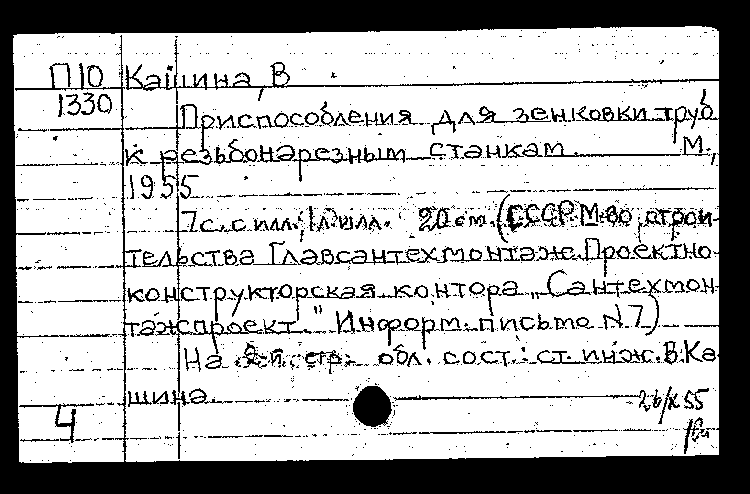 П10 Кашина, В
1330
Приспособления для зенковки труб
к резьбонарезным станкам. М.,
1955
7с. с илл., 1л. илл. 20 см. (СССР М-во строи-
тельства Главсантехмонтаж. Проектно-
конструкторская контора „Сантехмон-
тажпроект." Информ. письмо N 7)
На 2-й стр. обл. сост.: ст. инж. В. Ка-
шина.
4
26/X 55